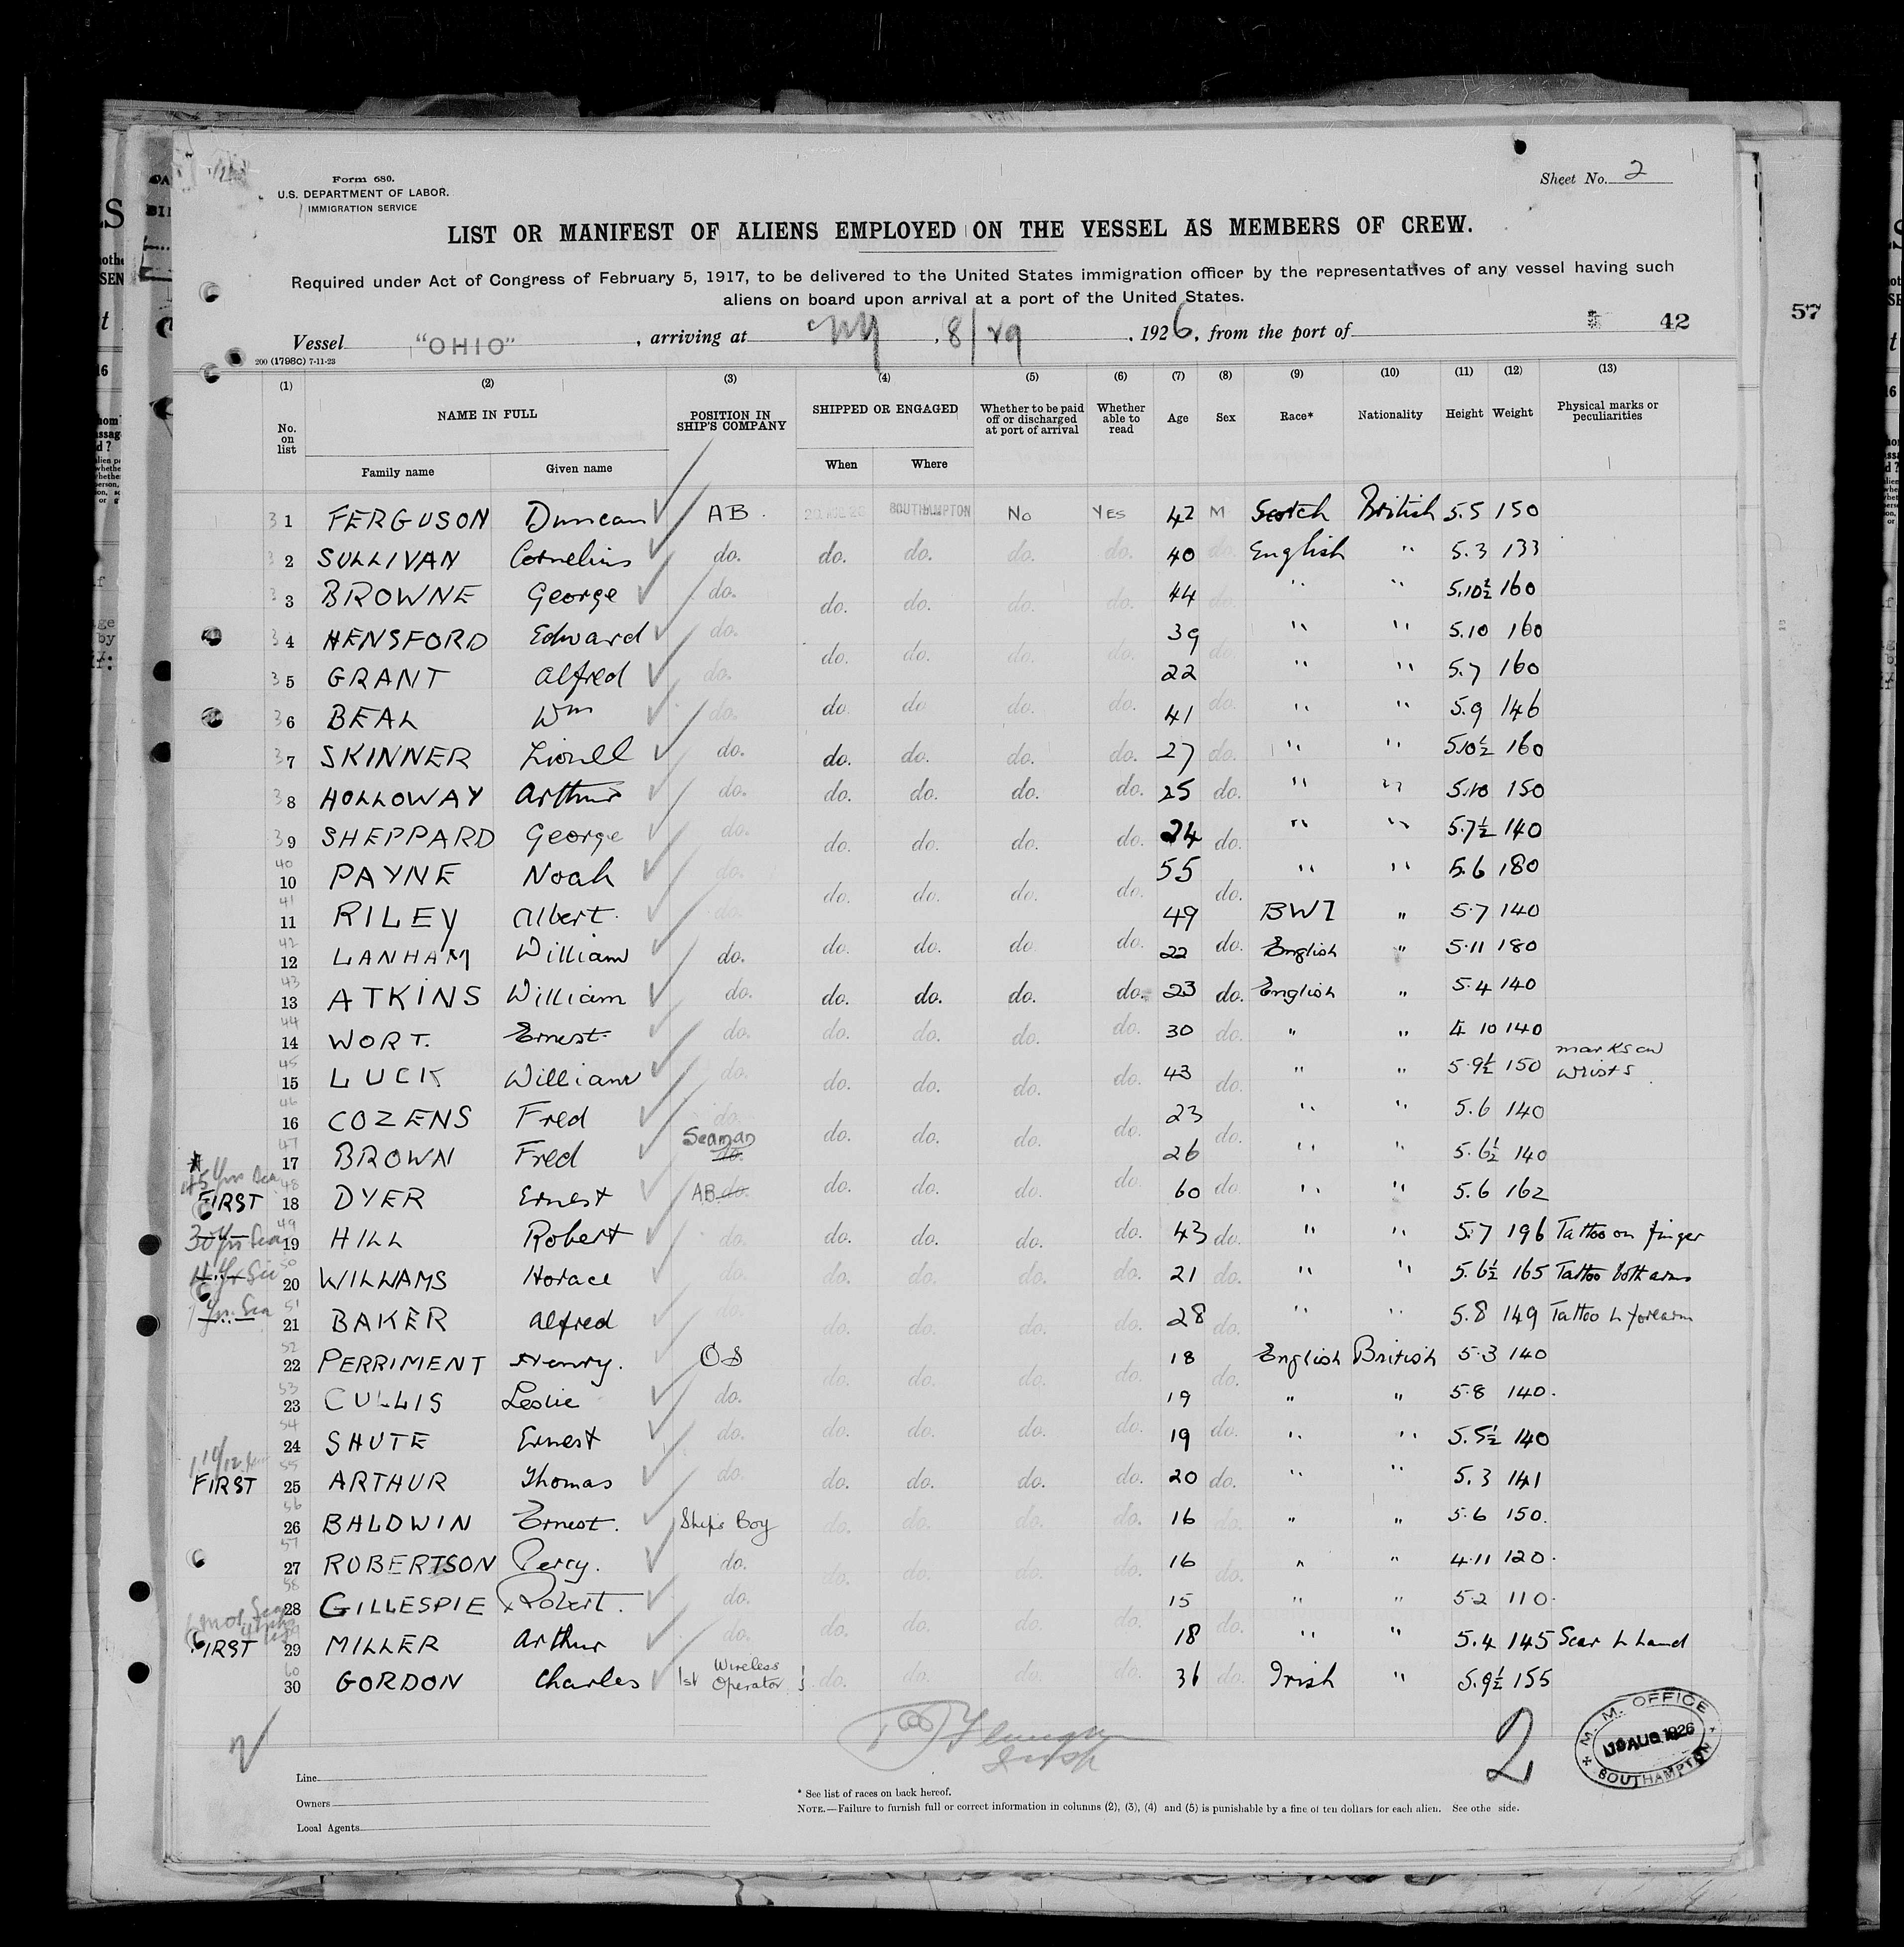 Form 680.
U.S. DEPARTMENT OF LABOR.
IMMIGRATION SERVICE
Sheet No. 2
LIST OR MANIFEST OF ALIENS EMPLOYED ON THE VESSEL AS MEMBERS OF CREW.
Required under Act of Congress of February 5, 1917, to be delivered to the United States immigration officer by the representatives of any vessel having such
aliens on board upon arrival at a port of the United States.
42
57
Vessel "OHIO", arriving at NY, 8/29, 1926, from the port of
200 (1798C) 7-11-23
(1) (2) (3) (4) (5) (6) (7) (8) (9) (10) (11) (12) (13)
No. on list NAME IN FULL POSITION IN SHIP'S COMPANY SHIPPED OR ENGAGED Whether to be paid off or discharged at port of arrival Whether able to read Age Sex Race* Nationality Height Weight Physical marks or peculiarities
Family name Given name When Where
1 FERGUSON Duncan AB. SOUTHAMPTON No YES 42 M Scotch British 5.5 150
2 SULLIVAN Cornelius do. do. do. do. do. 40 do. English " 5.3 133
3 BROWNE George do. do. do. do. do. 44 do. " " 5.10½ 160
4 HENSFORD Edward do. do. do. do. do. 39 do. " " 5.10 160
5 GRANT Alfred do. 22 " " 5.7 160
6 BEAL Wm do. do. do do. do. 41 do. " " 5.9 146
7 SKINNER Lionell do. do. do. do. do. 27 do. " " 5.10½ 160
8 HOLLOWAY Arthur do. do. do. do. do. 25 do. " " 5.10 150
9 SHEPPARD George do. do. do. do. do. 24 do. " " 5.7½ 140
10 PAYNE Noah do. do. do. do. do. 55 do. " " 5.6 180
11 RILEY Albert. do. 49 BWI " 5.7 140
12 LANHAM William do. do. do. do. do. 22 do. English " 5.11 180
13 ATKINS William do. do. do. do. do. 23 do. English " 5.4 140
14 WORT. Ernest. do. do. do. do. do. 30 do. " " 4 10 140
15 LUCK William do. do. do. do. do. 43 do. " " 5.9½ 150 marks on wrists
16 COZENS Fred do. 23 " " 5.6 140
17 BROWN Fred Seaman do. do. do. do. do. 26 do. " " 5.6½ 140
FIRST 18 DYER Ernest AB do. do. do. do. do. 60 do " " 5.6 162
30 yrs Sea 19 HILL Robert do. do. do. do. do. 43 do. " " 5.7 196 Tattoo on finger
20 WILLIAMS Horace do. do. do. do. do. 21 do. " " 5.6½ 165 Tattoo both arms
21 BAKER Alfred do. do. do. do. do. 28 do. " " 5.8 149 Tattoo L forearm
22 PERRIMENT Henry. OS do. do. do. do. 18 do. English British 5.3 140
23 CULLIS Leslie do. 19 " " 5.8 140.
24 SHUTE Ernest do. do. do. do. do. 19 do. " " 5.5½ 140
FIRST 25 ARTHUR Thomas do. do. do. do. do. 20 do. " " 5.3 141
26 BALDWIN Ernest. Ship's Boy do. do. do. do. 16 do. " " 5.6 150.
27 ROBERTSON Percy. do. do. do. do. do. 16 do. " " 4.11 120.
28 GILLESPIE Robert. do. 15 " " 5.2 110.
FIRST 29 MILLER Arthur do. do. do. do. do. 18 do. " " 5.4 145 Scar L Hand
30 GORDON Charles 1st Wireless Operator do. do. do. do. 36 do. Irish " 5.9½ 155
2
M. M. OFFICE
19 AUG 1926
SOUTHAMPTON
Line
Owners
Local Agents
* See list of races on back hereof.
NOTE.—Failure to furnish full or correct information in columns (2), (3), (4) and (5) is punishable by a fine of ten dollars for each alien. See othe side.